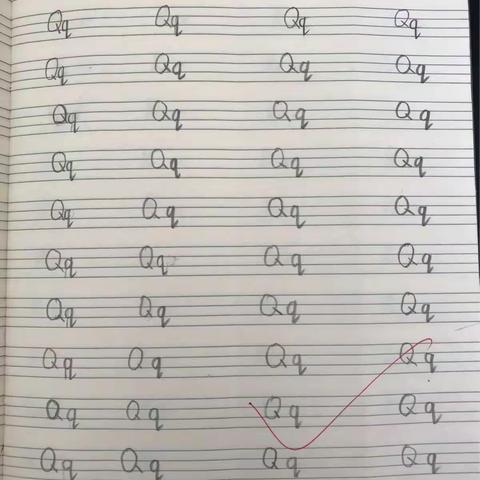 Qq Qq Qq Qq
Qq Qq Qq Qq
Qq Qq Qq Qq
Qq Qq Qq Qq
Qq Qq Qq Qq
Qq Qq Qq Qq
Qq Qq Qq Qq
Qq Qq Qq Qq
Qq Qq Qq Qq
Qq Qq Qq Qq